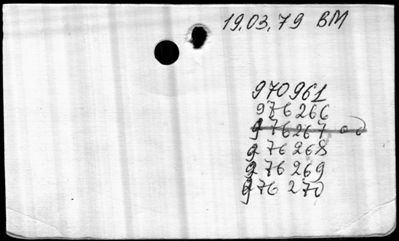 19.03.79 BM
970961
976266
976267
976268
976269
976270